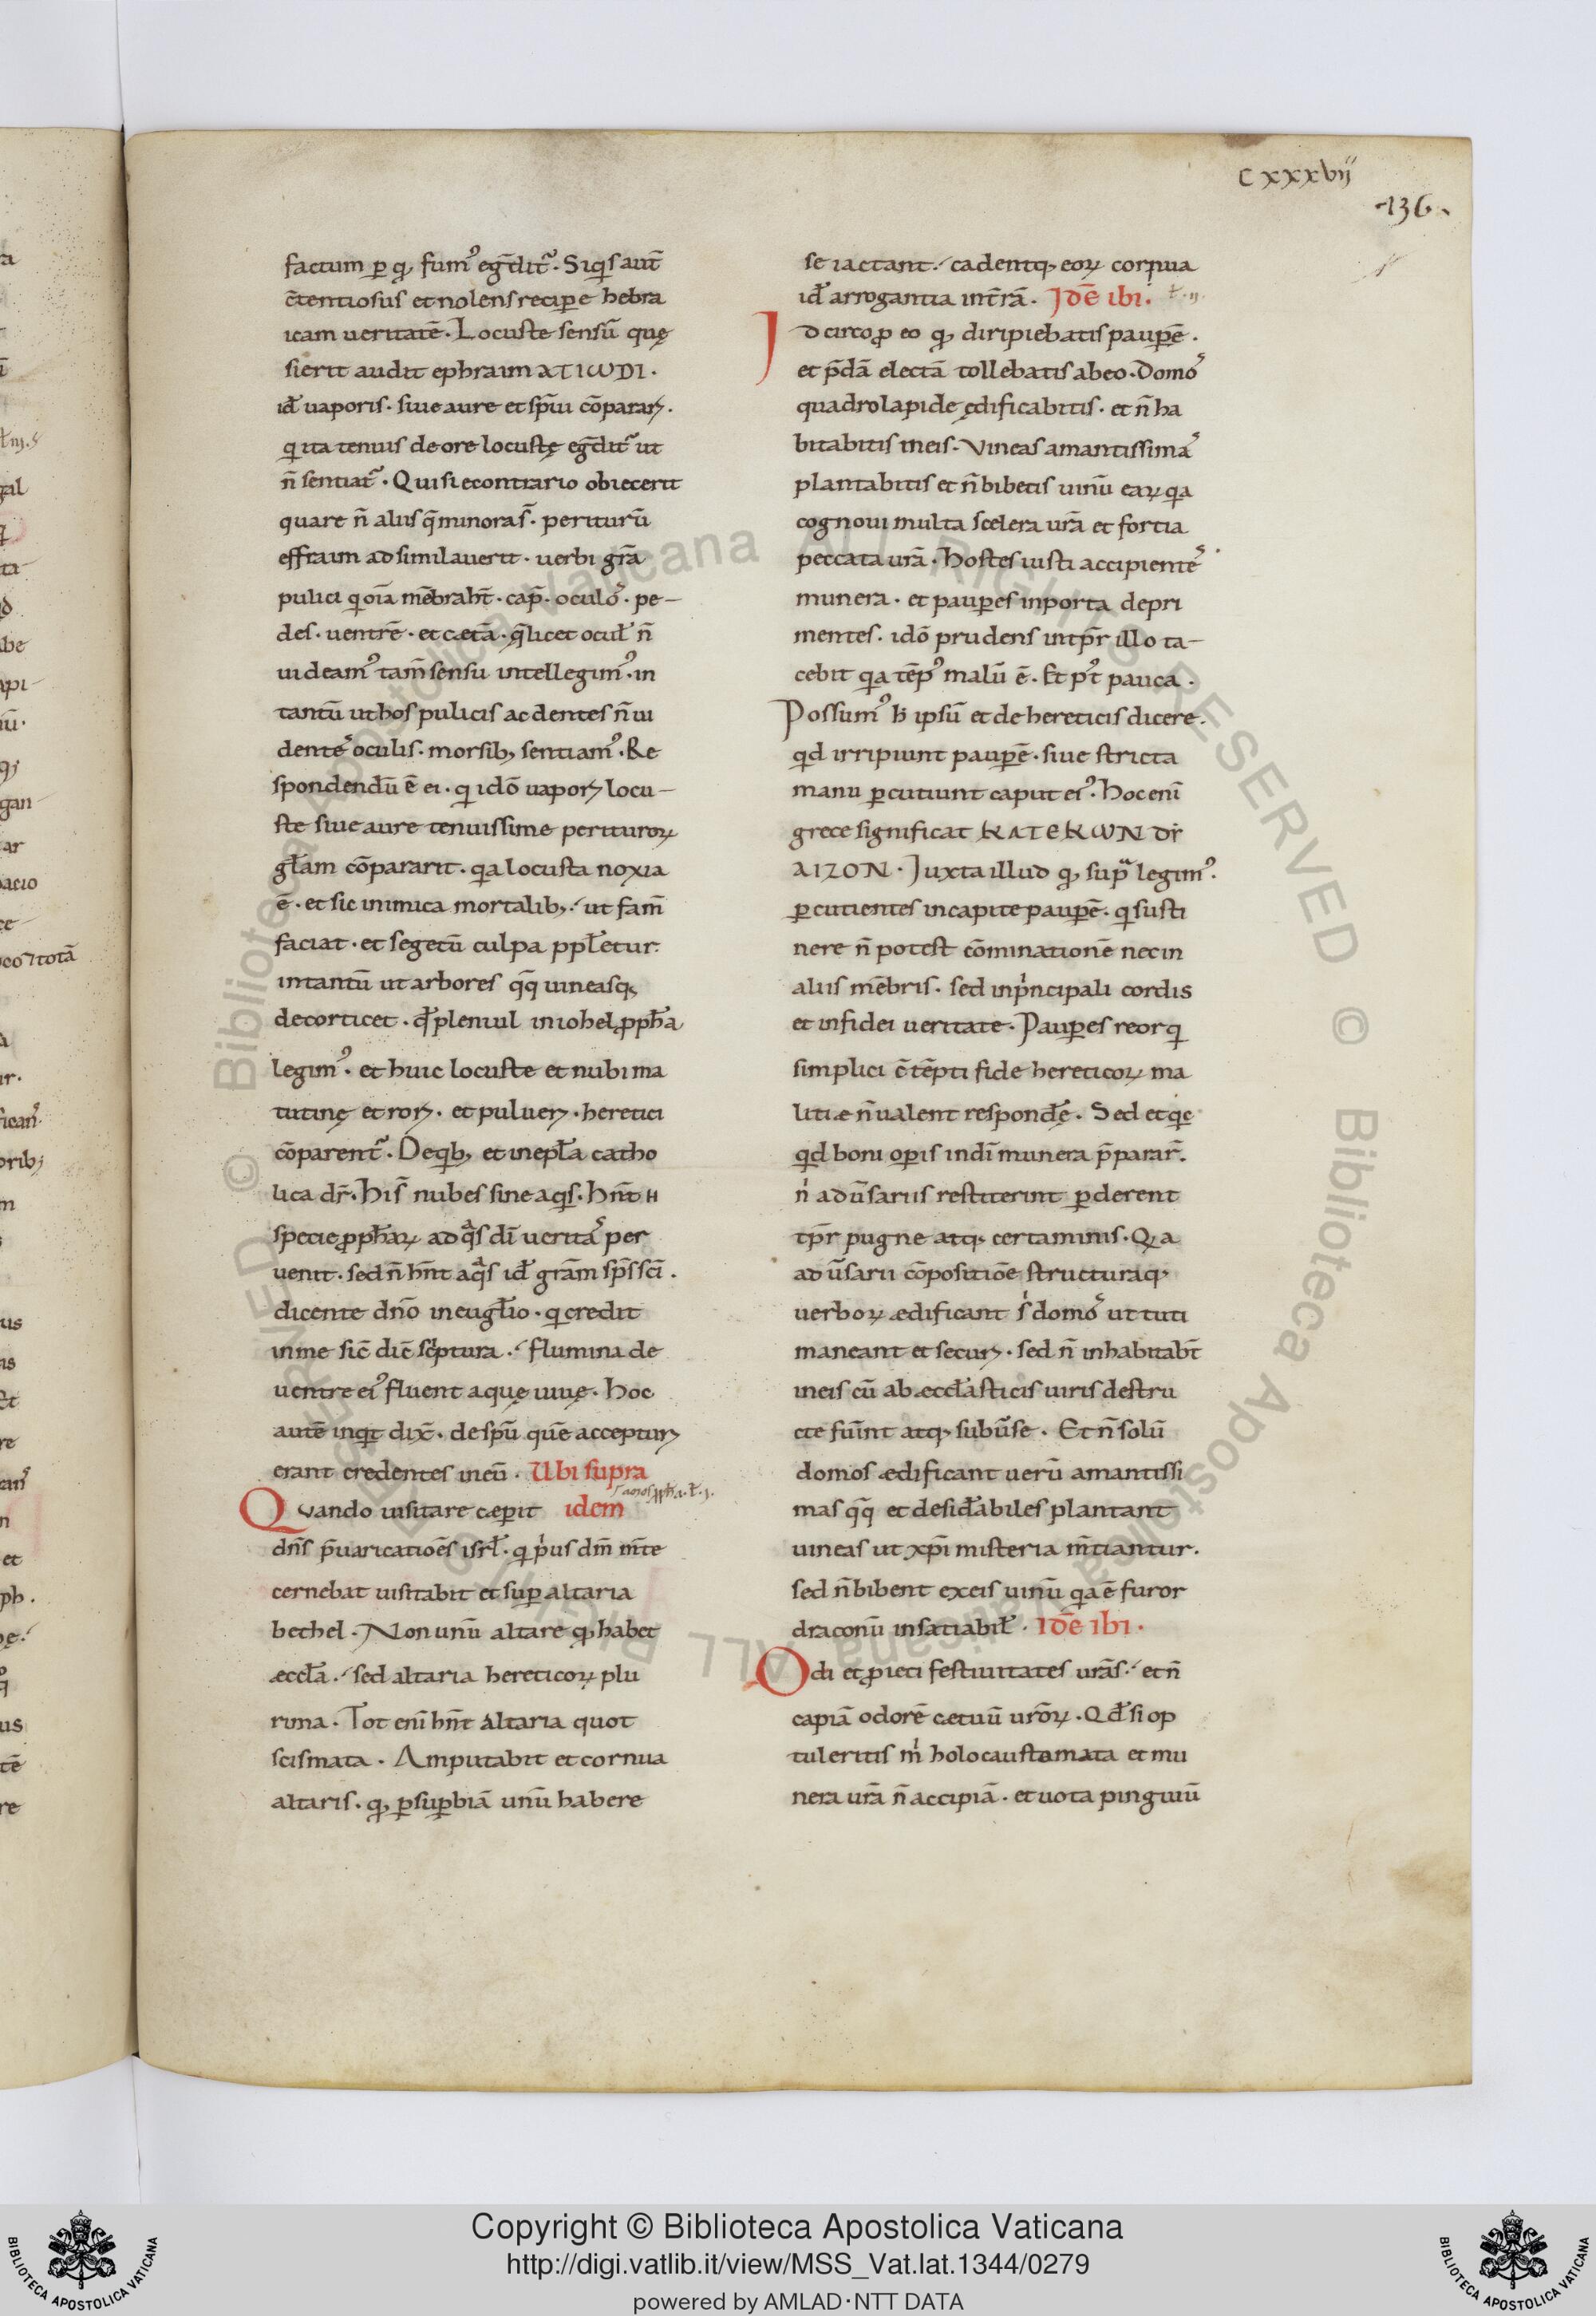 cxxxvij
-136-
factum ꝑ q̣ fumꝰ eg̅dit᷑. Siqͥs aut̅
c̅tentiosus et nolens reciꝑe hebra
icam ueritate̅. Locuste sensu̅ quę
sierit audit ephraim ATIWDI.
id̅ uaporis. siue aure et sp̅iu co̅pararꝫ.
q ita tenuis de ore locustę eg̅dit᷑ ut
n̅ sentiat᷑. Qui si econtrario obiecerit
quare n̅ aliis q̅ minora s̅. perituru̅
effraim adsimilauerit. uerbi gr̅a
pulici q oi̅a me̅bra hn̅t. cap̅. oculoꝰ. pe-
des. uentre̅. et cæta̅. q̅ licet ocul̅ n̅
uideamꝰ tam̅ sensu intellegimꝰ. in
tantu̅ ut hos pulicis ac dentes n̅ ui
denteˢ oculis. morsibꝫ sentiamꝰ. Re
spondendu̅ e̅ ei. q ido̅ uaporꝫ locu-
ste siue aure tenuissime perituroꝝ
gl̅am co̅pararit. qa locusta noxia
e̅. et sic inimica mortalibꝫ. ut fam̅
faciat. et segetu̅ culpa ppl̅etur.
intantu̅ ut arbores qq̅ uineasqꝫ
decorticet. qd̅ pleniul in iohel ꝓpha̅
legimꝰ. et huic locuste et nubi ma
tutinę et rorꝫ. et puluerꝫ. heretici
co̅parent᷑. De qbꝫ et in epl̅a catho
lica dr̅. His̅ nubes sine aqͥs. hn̅t H
specie ꝓphaꝝ̅ ad qͣs di̅ ueritaˢ per
uenit. sed n̅ hn̅t aqͣs id̅ gr̅am sp̅s sc̅i.
dicente dn̅o in eugl̅io. q credit
in me sic̅ dic̅ sc̅ptura. flumina de
uentre eiꝰ fluent aquę uiuę. hoc
aute̅ inqͥt dix̅. de sp̅u que̅ accepturꝫ
erant credentes in eu̅. Ubi supra
Quando uisitare cæperit idem
dn̅s p̅uaricatio̅es isrl̅. q pͥus dm̅ m̅te
cernebat uisitabit et suꝑ altaria
bethel. Non unu̅ altare q̣ habet
æccl̅a. sed altaria hereticoꝝ plu
rima. Tot eni̅ hn̅t altaria quot
scismata. Amputabit et cornua
altaris. q̣ ꝑ suꝑbia̅ unu̅ habere
se iactant. cadentqꝫ eoꝝ cornua
id̅ arrogantia int̅ra̅. Ide̅ ibi.
Idcirco ꝓ eo q̣ diripiebatis pauꝑe̅.
et p̅da̅ electa̅ tollebatis ab eo. Domoˢ
quadro lapide ędificabitis. et n̅ ha
bitabitis in eis. Vineas amantissimaˢ
plantabitis et n̅ bibetis uinu̅ eaꝝ qa
cognoui multa scelera ur̅a et fortia
peccata ur̅a. Hostes iusti accipienteˢ
munera. et pauꝑes in porta depri
mentes. ido̅ prudens in tp̅r illo ta-
cebit qa te̅pꝰ malu̅ e̅. Et pꝰt pauca.
Possumꝰ h̅ ipsu̅ et de hereticis dicere.
qd irripiunt pauꝑe̅. siue stricta
manu ꝑcutiunt caput eiꝰ. Hoc eni̅
grece significat KATEKWN Dr̅
AIZON. Iuxta illud q̣ supͣ legimꝰ.
ꝑcutientes in capite pauꝑe̅. q susti
nere n̅ potest co̅minatione̅ nec in
aliis me̅bris. sed in pͥncipali cordis
et in fidei ueritate. Pauꝑes reor q
simplici c̅te̅pti fide hereticoꝝ ma
litiæ n̅ ualent respond̅ę. Sed et qc
qd boni oꝑis in di̅ munera p̅parar̅.
nͥ adu̅sariis restiterint ꝑderent
tp̅r pugne atqꝫ certaminis. Q a
adu̅sarii co̅positio̅e structuraqꝫ
uerboꝝ ædificant sͥ domoˢ ut tuti
maneant et securꝫ. sed n̅ inhabitabt̅
in eis cu̅ ab æccl̅asticis uiris destru
cte fui̅nt atqꝫ subu̅se. Et n̅ solu̅
domos ædificant ueru̅ amantissi
mas qq̅ et desid̅abiles plantant
uineas ut xp̅i misteria m̅tiantur.
sed n̅ bibent ex eis uinu̅ qa e̅ furor
draconu̅ insatiabil̅. Ide̅ ibi.
Odi et ꝓieci festiuitates ur̅as. et n̅
capia̅ odore̅ cætuu̅ ur̅oꝝ. Qd̅ si op
tuleritis mͥ holocaustamata et mu
nera ur̅a n̅ accipia̅. et uota pinguiu̅
Copyright © Biblioteca Apostolica Vaticana
http://digi.vatlib.it/view/MSS_Vat.lat.1344/0279
powered by AMLAD·NTT DATA